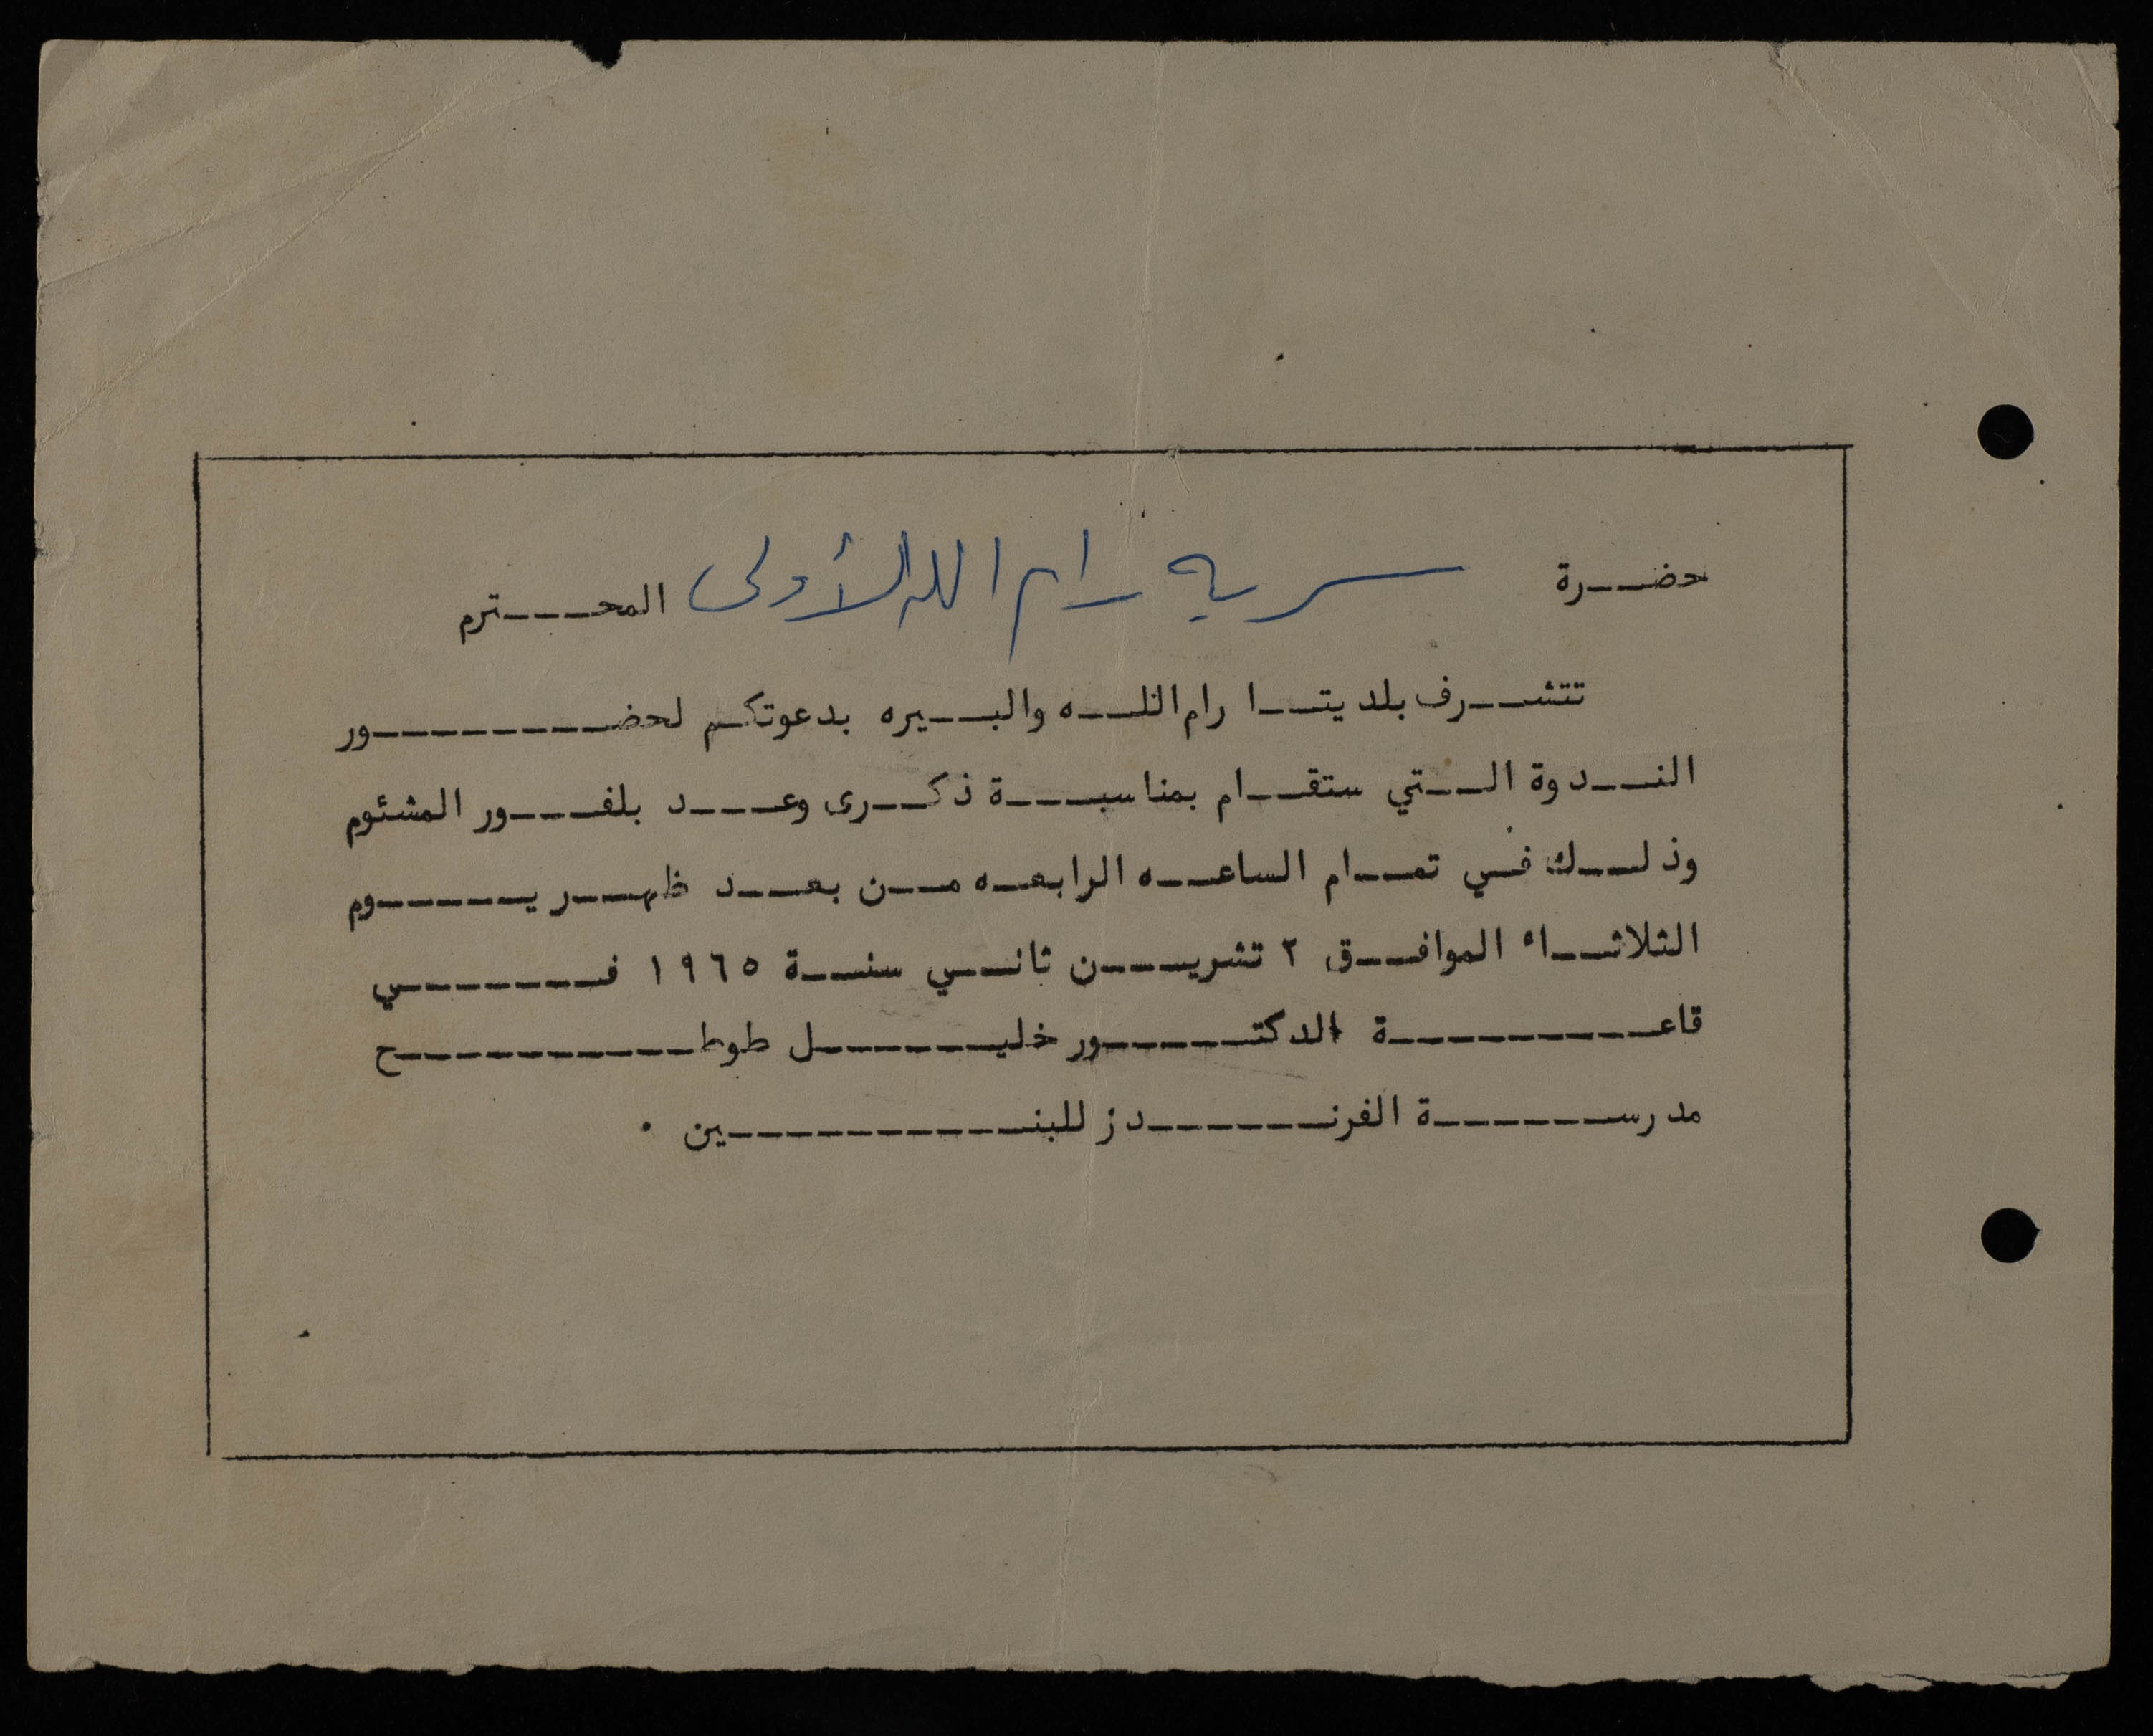 حضرة سريه رام الله الأولى المحترم
تتشرف بلديتا رام الله والبيره بدعوتكم لحضور
الندوة التي ستقام بمناسبة ذكرى وعد بلفور المشئوم
وذلك في تمام الساعه الرابعه من بعد ظهر يوم
الثلاثاء الموافق ٢ تشرين ثاني سنة ١٩٦٥ في
قاعة الدكتور خليل طوطح
مدرسة الفرندز للبنين .